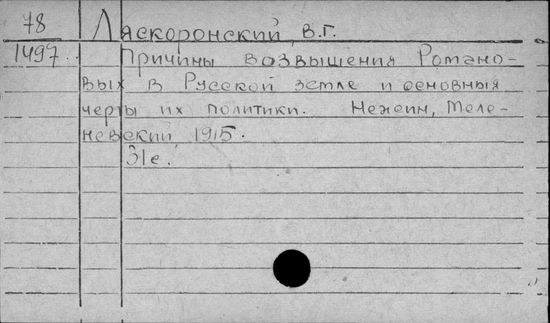 78
1497.
Ляскоронский, В.Г.
Причины возвышения Романо-
вых в Русской земле и основныя
черты их политики. Нежин, Меле-
невский 1915.
31с.